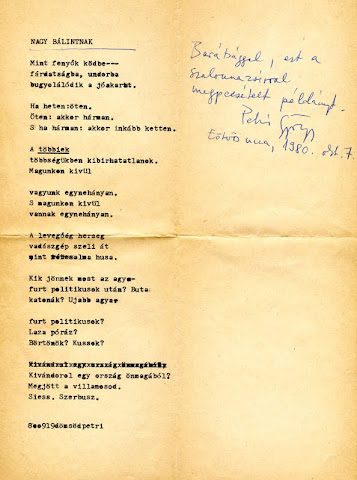 NAGY BÁLINTNAK
Mint fenyők ködbe---
fáradtságba, undorba
bugyolálódik a jóakarat.
Ha heten:öten.
Öten: akkor hárman.
S ha hárman: akkor inkább ketten.
A többiek
többségükben kibirhatatlanok.
Magunkon kivül
vagyunk egynehányan.
S magunkon kivül
vannak egynehányan.
A levegőég herceg
vadászgép szeli át
mint husa.
Kik jönnek most az agya-
furt politikusok után? Buta
katonák? Ujabb agya-
furt politikusok?
Laza póráz?
Börtönök? Kussok?
Kivándorol egy ország önmagából?
Megjött a villamosod.
Siess. Szerbusz.
8oo919dömsödpetri
Barátsággal, ezt a
szalonnazsirral
megpecsételt példányt.
Petri György
Eötvös utca, 1980. okt. 7.